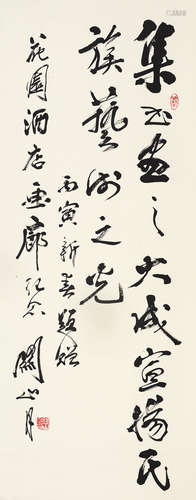 集書畫之大成宣揚民
族藝術之光
丙寅新春題贈
花園酒店畫廊紀念
關山月